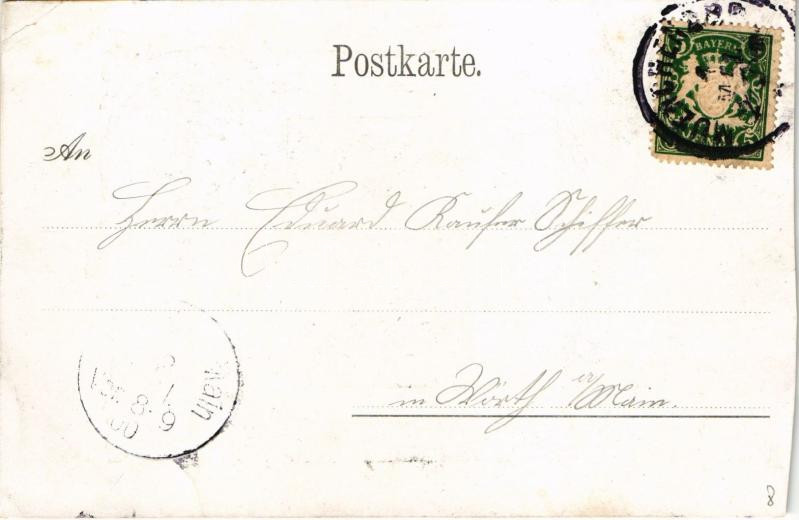 Postkarte.
BAYERN
5
An
Herrn Eduard Kaufer Schiffer
in Wörth a/Main.
Main
8